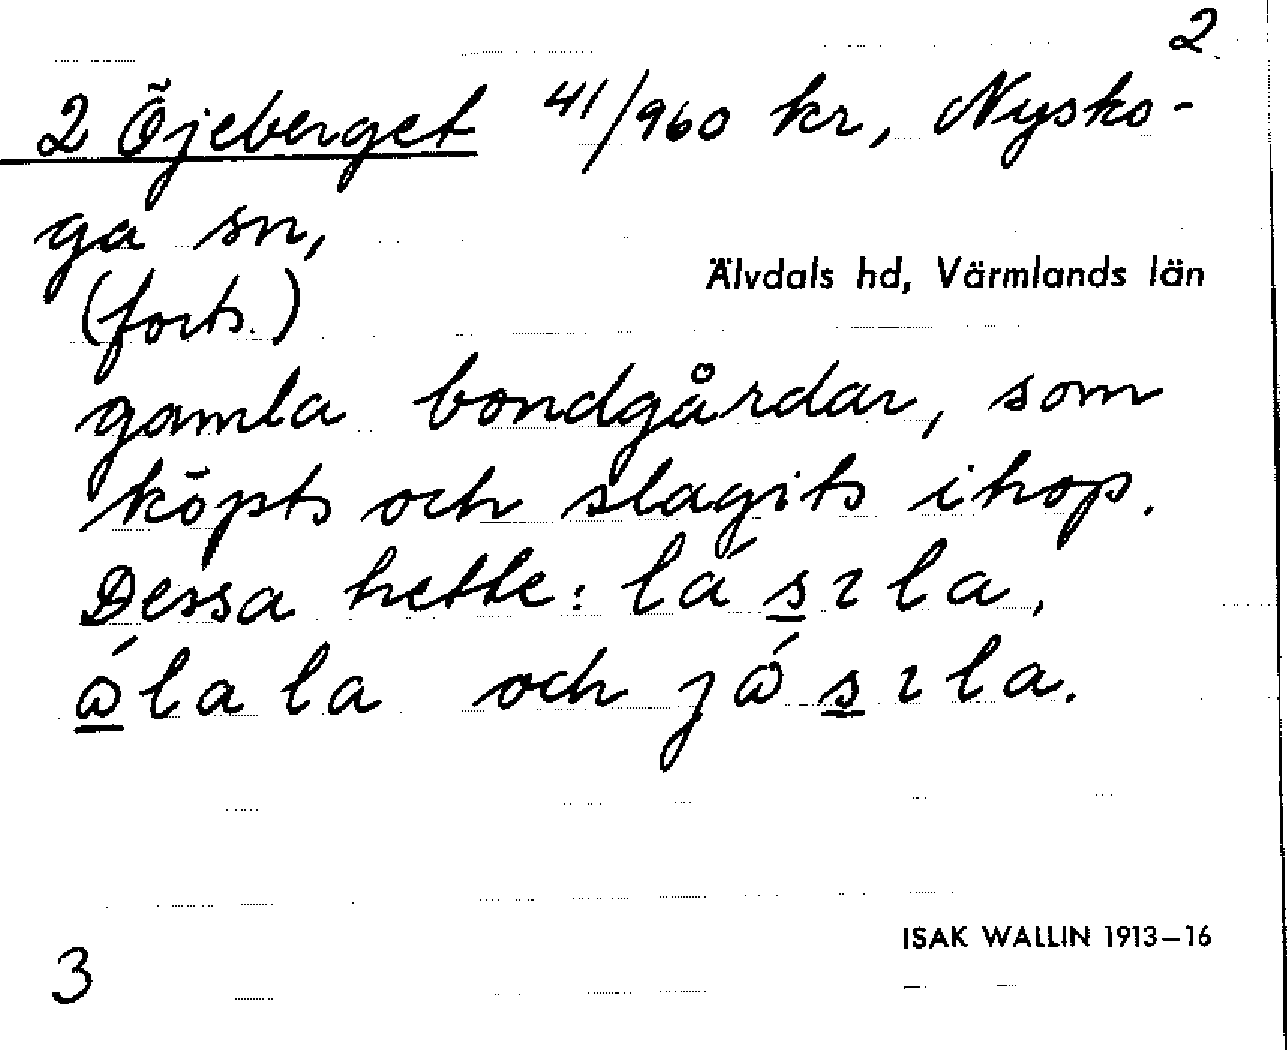 2
2 Öjeberget 41/960 kr, Nysko-
ga sn,
Älvdals hd, Värmlands län
(forts.)
gamla bondgårdar, som
köpts och slagits ihop.
Dessa hette: lásɿla,
ålala och jåsɿla.
ISAK WALLIN 1913–16
3